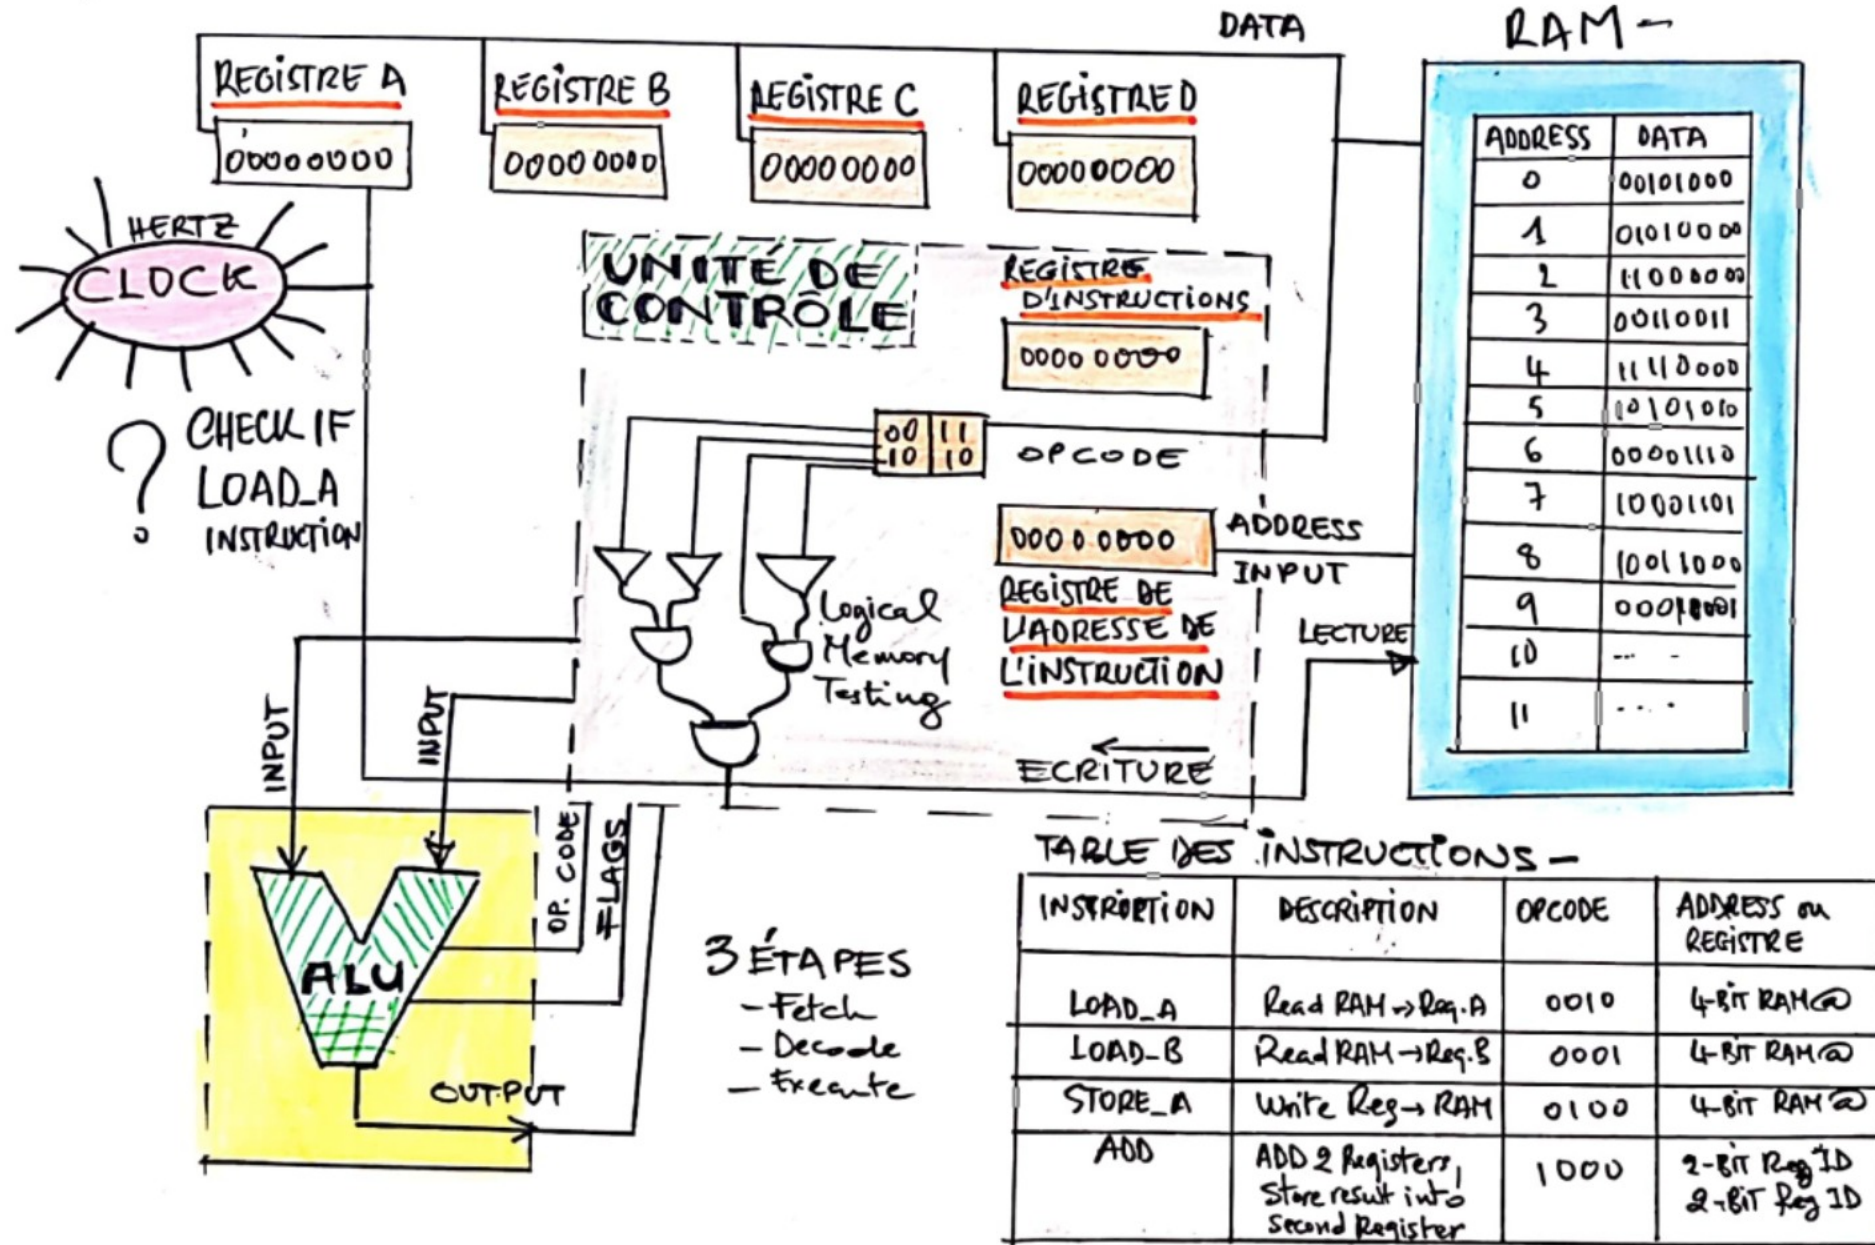 DATA
RAM -
REGISTRE A
00000000
REGISTRE B
00000000
REGISTRE C
00000000
REGISTRE D
00000000
HERTZ
CLOCK
? CHECK IF
LOAD_A
INSTRUCTION
UNITÉ DE
CONTRÔLE
REGISTRE
D'INSTRUCTIONS
0000 0000
00 11
10 10
OPCODE
0000 0000
ADDRESS
INPUT
REGISTRE DE
L'ADRESSE DE
L'INSTRUCTION
Logical
Memory
Testing
LECTURE
ECRITURE
ADDRESS DATA
0 00101000
1 01010000
2 11000000
3 00110011
4 11110000
5 10101010
6 00001110
7 10001101
8 10011000
9
10 ... -
11 ....
INPUT
INPUT
OP. CODE
FLAGS
ALU
OUTPUT
3 ÉTAPES
- Fetch
- Decode
- Execute
TABLE DES INSTRUCTIONS -
INSTRUCTION DESCRIPTION OPCODE ADDRESS ou
REGISTRE
LOAD_A Read RAM → Reg.A 0010 4-BIT RAM@
LOAD-B Read RAM → Reg.B 0001 4-BIT RAM@
STORE_A Write Reg → RAM 0100 4-BIT RAM@
ADD ADD 2 Registers, 1000 2-BIT Reg ID
Store result into 2-BIT Reg ID
Second Register